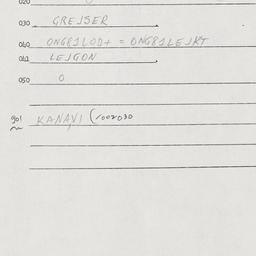 020
030 GREJSER
040 ONG81LOD+ = ONG81LEJKT
041 LEJGON
050 0
90! KANAVI (1002030